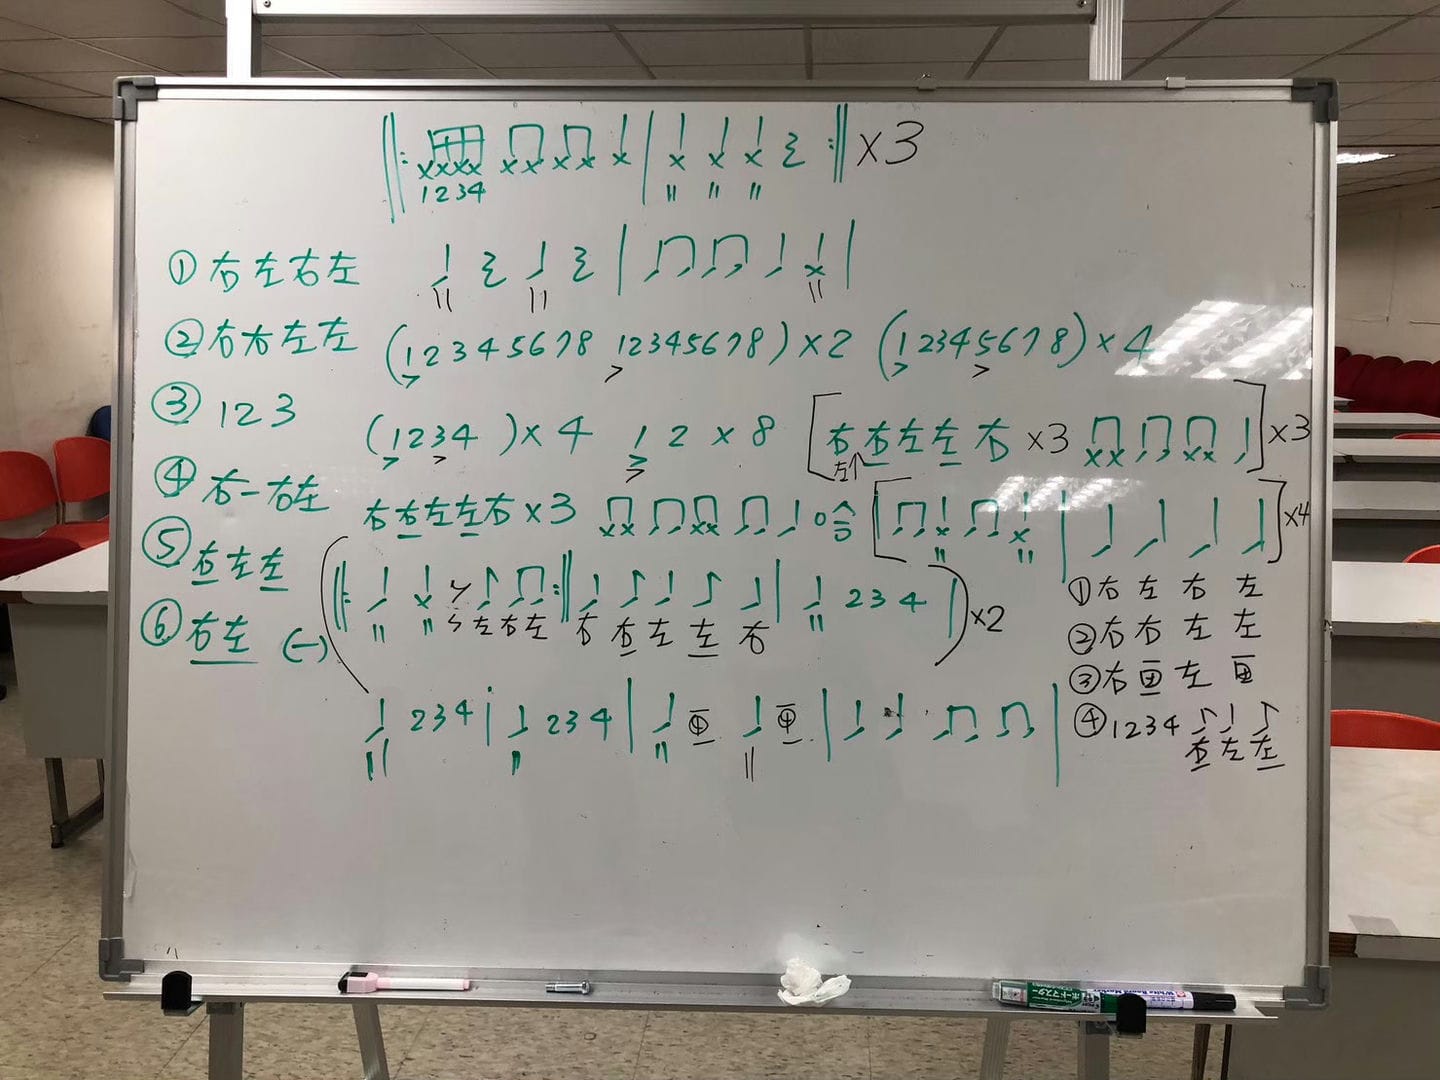 ×3
1234
① 右左右左
② 右右左左 (12345678 12345678)×2 (12345678)×4
③ 123 (1234)×4 12×8 [右右左左右×3 ]×3
左个
④ 右一右左 右右左左右×3 ]×4
⑤ 右左左
左右左 右右左左右 234 ×2
⑥ 右左 (一)
234 234
①右左右左
②右右左左
③右画左画
④1234
右左左